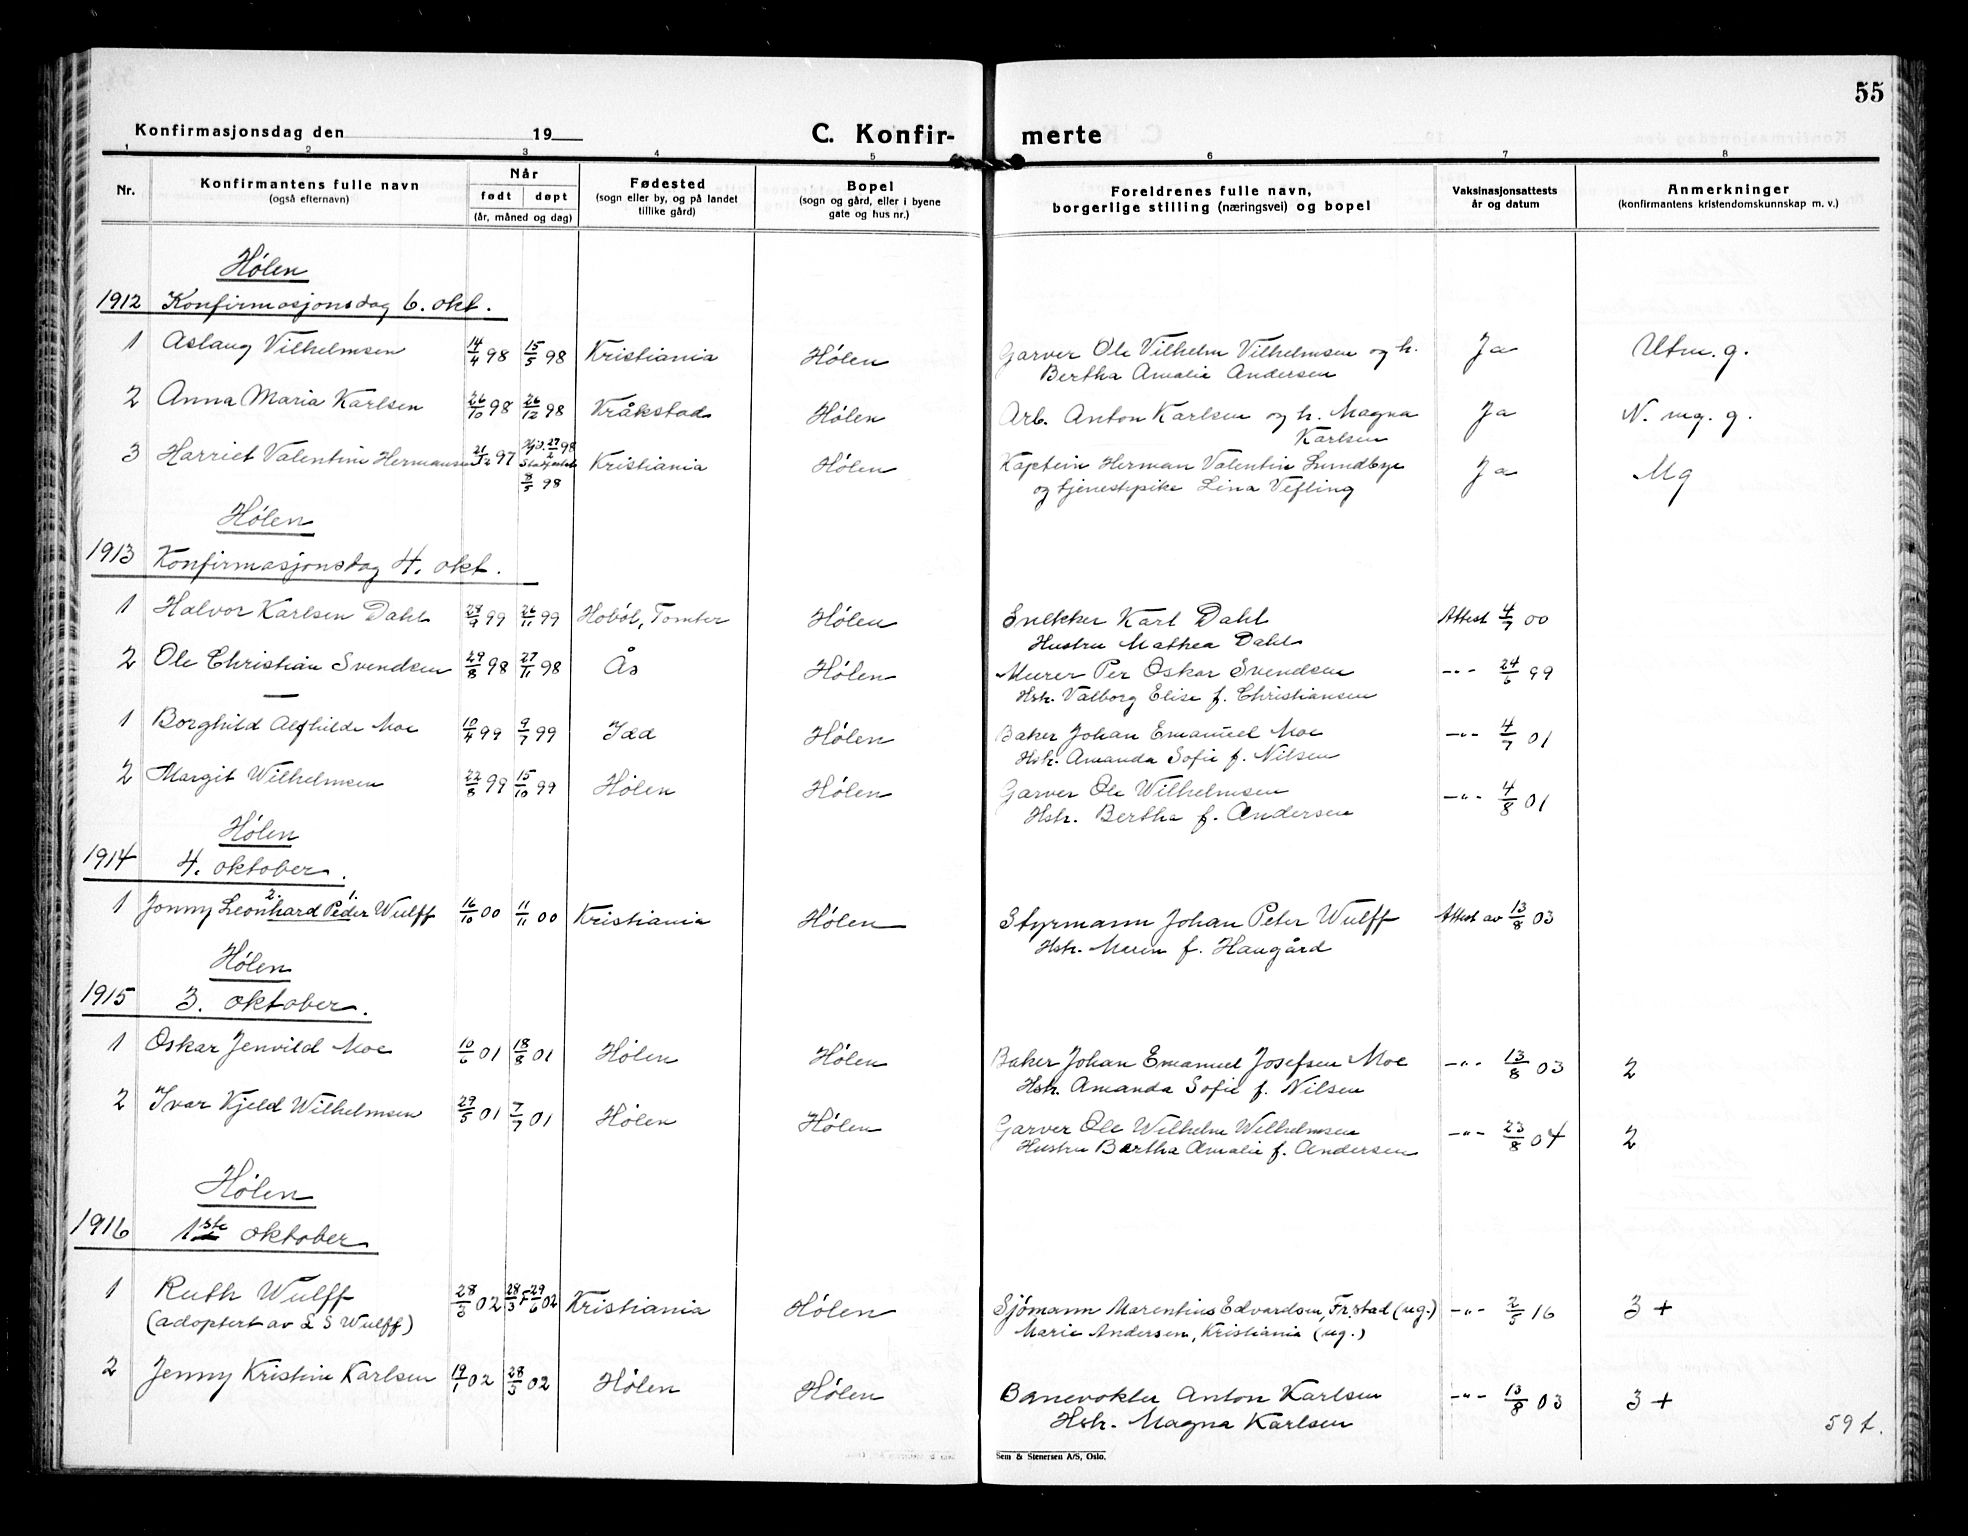 55
Konfirmasjonsdag den 19
C. Konfir- merte
1 2 3 4 5 6 7 8
Nr. Konfirmantens fulle navn (også efternavn) Når født døpt (år, måned og dag) Fødested (sogn eller by, og på landet tillike gård) Bopel (sogn og gård, eller i byene gate og hus nr.) Foreldrenes fulle navn, borgerlige stilling (næringsvei) og bopel Vaksinasjonsattests år og datum Anmerkninger (konfirmantens kristendomskunnskap m. v.)
Hølen
1912 Konfirmasjonsdag 6. okt.
1 Aslaug Vilhelmsen 14/4 98 15/5 98 Kristiania Hølen Garver Ole Vilhelm Vilhelmsen og h. Ja Utm. g.
Bertha Amalie Andersen
2 Anna Maria Karlsen 26/10 98 26/12 98 Kråkstad Hølen Arb. Anton Karlsen og h. Magna Ja N. mg. g.
Karlsen
3 Harriet Valentin Hermansen 21/12 97 27/2 98 Kristiania Hølen Kaptein Herman Valentin Lundbye Ja Mg
8/5 98 og tjenestepike Lina Vefling
Hølen
1913 Konfirmasjonsdag 4. okt.
1 Halvor Karlsen Dahl 28/9 99 26/11 99 Hobøl, Tomter Hølen Snekker Karl Dahl Attest 4/7 00
Hustru Mathea Dahl
2 Ole Christian Svendsen 29/8 98 27/11 98 Ås Hølen Murer Per Oskar Svendsen -"- 24/6 99
Hstr. Valborg Elise f. Christiansen
1 Borghild Alfhilde Moe 10/4 99 9/7 99 Idd Hølen Baker Johan Emanuel Moe -"- 4/7 01
Hstr. Amanda Sofie f. Nilsen
2 Margit Wilhelmsen 22/8 99 15/10 99 Hølen Hølen Garver Ole Wilhelmsen -"- 4/8 01
Hstr. Bertha f. Andersen
Hølen
1914 4. oktober.
2. 1.
1 Jonny Leonhard Peder Wulff 16/10 00 11/11 00 Kristiania Hølen Styrmann Johan Peter Wulff Attest av 13/8 03
Hstr. Maren f. Haugård
Hølen
1915 3. oktober.
1 Oskar Jenvild Moe 10/6 01 18/8 01 Hølen Hølen Baker Johan Emanuel Josefsen Moe -"- 13/8 03 2
Hstr. Amanda Sofie f. Nilsen
2 Ivar Kjeld Wilhelmsen 29/5 01 7/7 01 Hølen Hølen Garver Ole Wilhelm Wilhelmsen -"- 23/8 04 2
Hustru Bertha Amalie f. Andersen
Hølen
1916 1ste oktober
1 Ruth Wulff 28/3 02 28/3 F 29/6 02 Kristiania Hølen Sjømann Marentius Edvardsen, Fr.stad (ug.) -"- 2/5 16 3 +
(adoptert av L S Wulff) Marie Andersen, Kristiania (ug.)
2 Jenny Kristine Karlsen 19/1 02 28/3 02 Hølen Hølen Banevokter Anton Karlsen -"- 13/8 03 3 +
Hstr. Magna Karlsen
59 f.
Sem & Stenersen A/S, Oslo.